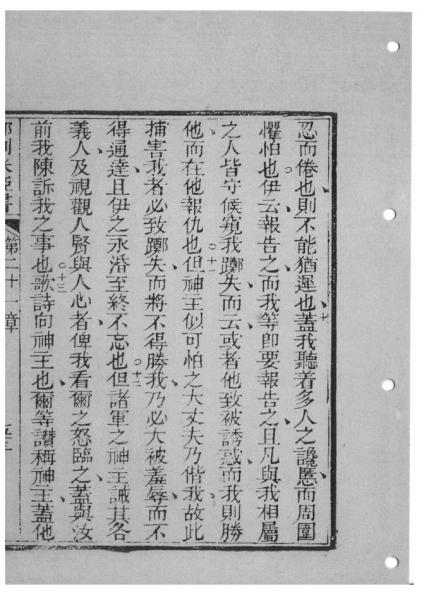 忍而倦也則不能猶運也蓋我聽着多人之讒慝而周圍
懼怕也伊云報告之而我等卽要報告之且凡與我相屬
之人皆守候窺我躑失而云或者他致被誘惑而我則勝
他而在他報仇也但神主似可怕之大丈夫乃偕我故此
捕害我者必致躑失而將不得勝我乃必大被羞辱而不
得通達且伊之永湣至終不忘也但諸軍之神主誡其各
義人及視觀人腎與人心者俾我看爾之怒臨之蓋與汝
前我陳訴我之事也歌詩向神主也爾等讃稱神主蓋他
第二十一章
十
十一
十二
十三